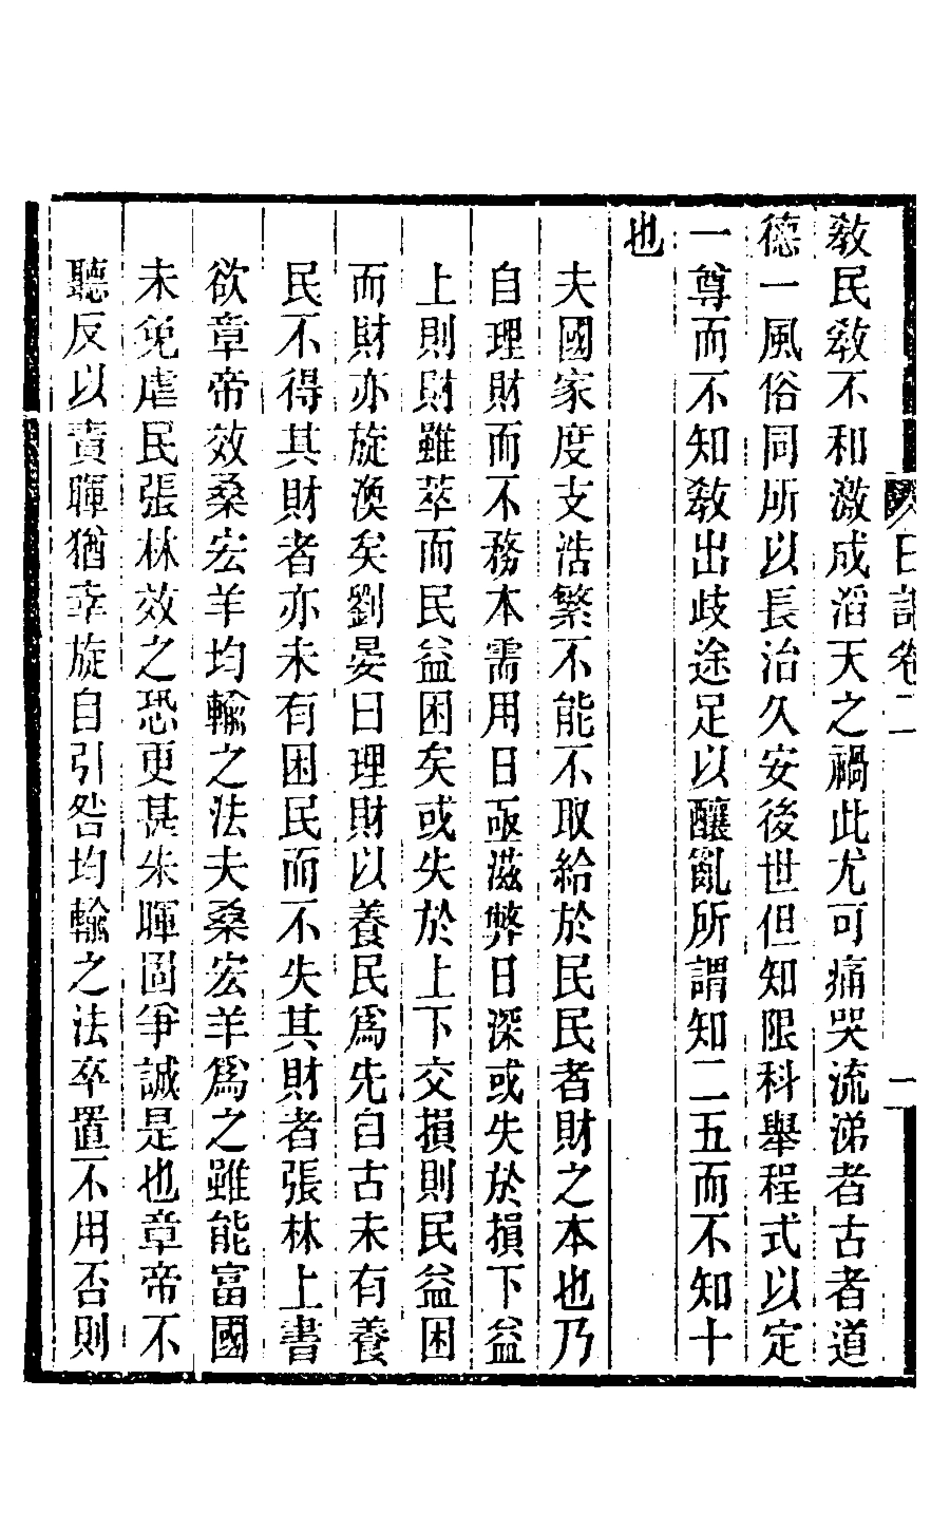 日記卷二
一
教民教不和激成滔天之禍此尤可痛哭流涕者古者道
德一風俗同所以長治久安後世但知限科舉程式以定
一尊而不知教出歧途足以釀亂所謂知二五而不知十
也
夫國家度支浩繁不能不取給於民民者財之本也乃
自理財而不務本需用日亟滋弊日深或失於損下益
上則財雖萃而民益困矣或失於上下交損則民益困
而財亦旋渙矣劉晏曰理財以養民爲先自古未有養
民不得其財者亦未有困民而不失其財者張林上書
欲章帝效桑宏羊均輸之法夫桑宏羊爲之雖能富國
未免虐民張林效之恐更甚朱暉固爭誠是也章帝不
聽反以責暉猶幸旋自引咎均輸之法卒置不用否則